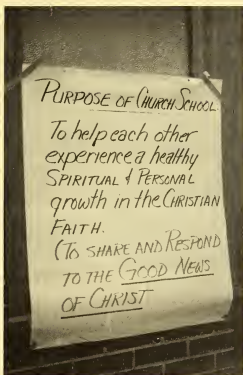 PURPOSE OF CHURCH SCHOOL
To help each other
experience a healthy
SPIRITUAL & PERSONAL
growth in the CHRISTIAN
FAITH.
(TO SHARE AND RESPOND
TO THE GOOD NEWS
OF CHRIST